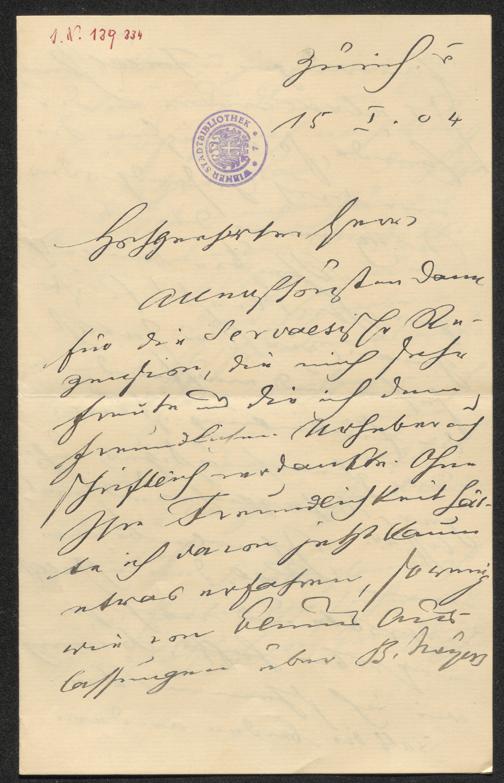 I. N. 139 334
WIENER STADTBIBLIOTHEK
Zürich. 5
15 I. 04
Hochgeehrter Herr
Allerschönsten Dank
für die Servaesische Re-
zension, die mich sehr
freute und die ich dem
freundlichen Urheber auch
schriftlich verdankte. Ohne
Ihre Freundlichkeit hät-
te ich davon jetzt kaum
etwas erfahren, so wenig
wie von Aus-
lassungen über B. Mayers